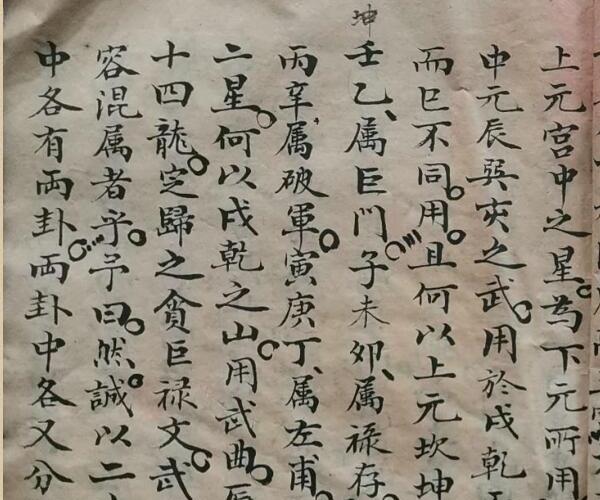 上元宫中之星。为下元所用
中元辰巽亥之武。用於戌乾
而已不同。用。且何以上元坎坤
坤
壬乙、属巨門。子未夘、属禄存
丙辛属破軍。寅庚丁、属左甫
二星。何以戌乾之山。用武曲。
十四龍。定歸之貪巨禄文武。
容混属者乎。予曰。然。誠以二
中各有両卦。両卦中各又分